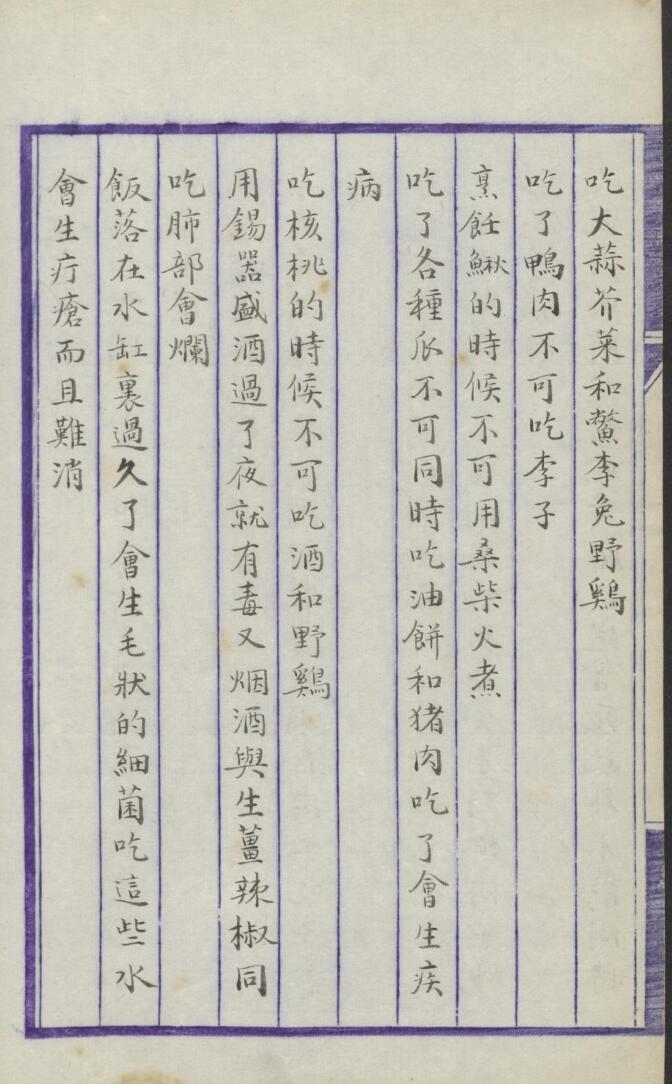 吃大蒜芥菜和鱉李兔野鷄
吃了鴨肉不可吃李子
烹飪鰍的時候不可用桑柴火煮
吃了各種瓜不可同時吃油餅和猪肉吃了會生疾
病
吃核桃的時候不可吃酒和野鷄
用錫器盛酒過了夜就有毒又烟酒與生薑辣椒同
吃肺部會爛
飯落在水缸裏過久了會生毛狀的細菌吃這些水
會生疔瘡而且難消